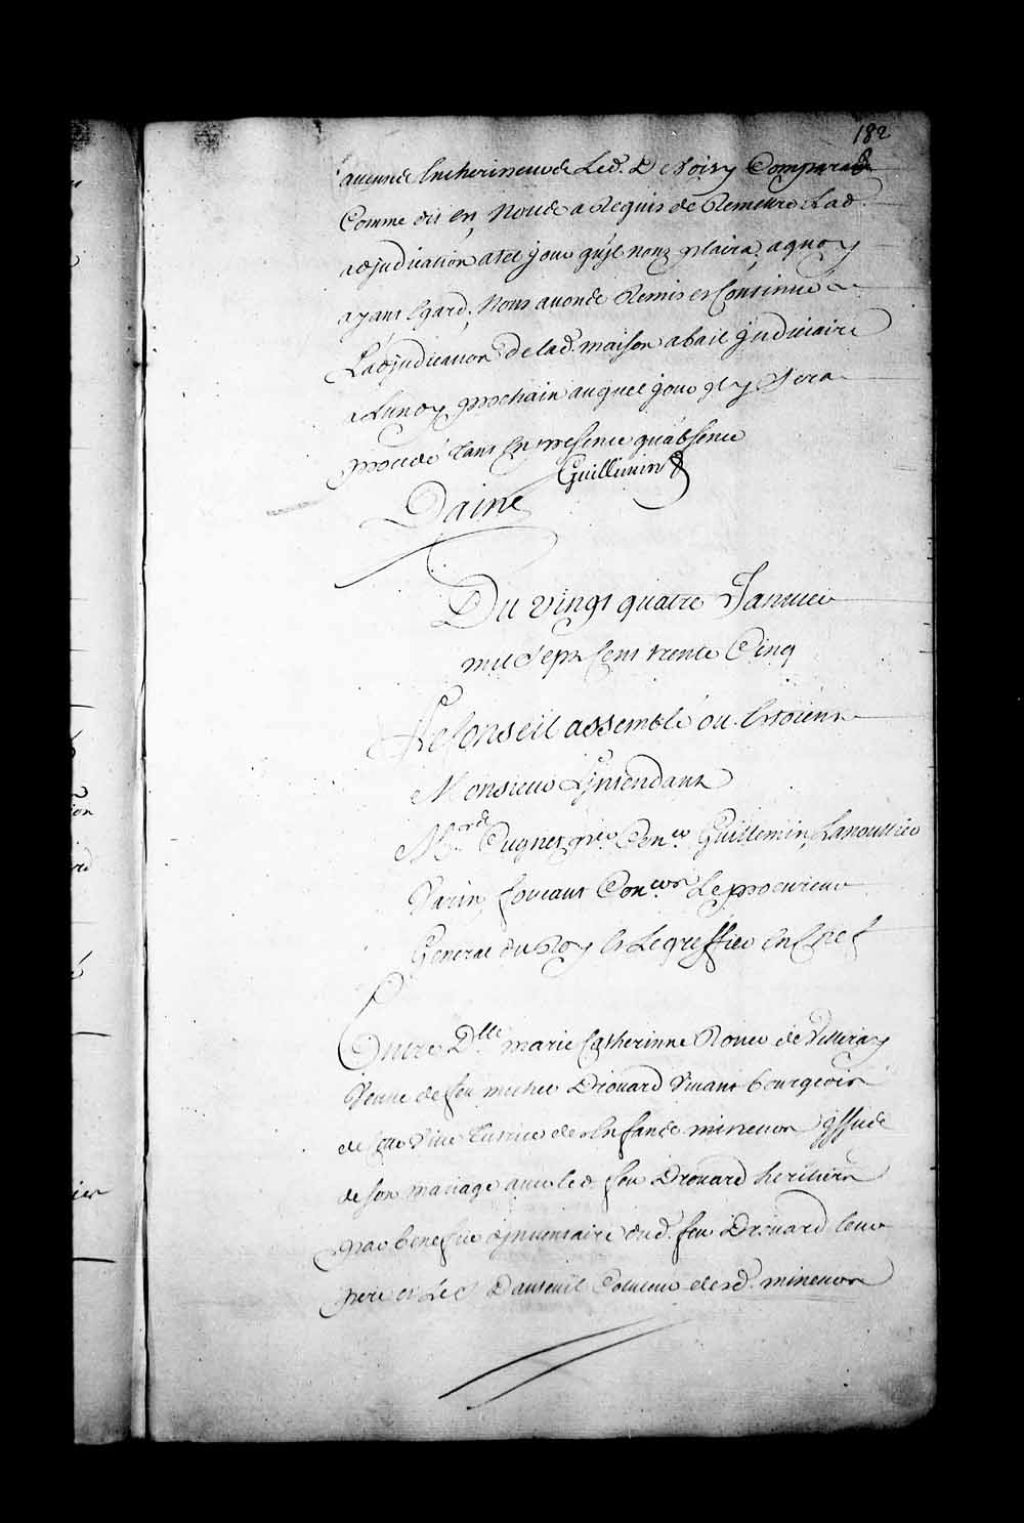 182
aucunds Encherisseurs de Led. De Noisy Comparant
Comme dit est, Nous a Requis de Remettre Lad.
adjudication a tel jour quil nous plaira, a quoy
ayant Egard, Nous avons Remis et Continué
L'adjudication de lad. maison a bail judiciaire
a Lundy prochain auquel jour il y Sera
procedé tant En presence qu'absence
Guillimin
Daine
Du vingt quatre Janvier
mil Sept Cent trente Cinq
Le Conseil assemblé ou Estoient
Monsieur L'jntendant
Mrs. Cugnet pr. Con.er Guillimin, Lanoullier
Varin, foucaut Con.ers Le procureur
General du Roy Et Le greffier En Chef
Entre D.lle marie Catherinne Rouer de Villeray
Veuve de feu michel Drouard Vivant bourgeois
de Cette Ville Tutrice des Enfands mineurs jssuds
de son mariage avec led. feu Drouard heritiers
par benefice djnventaire dud. feu Drouard leur
pere et Le S. Dauteuil Tuteur desd. mineurs